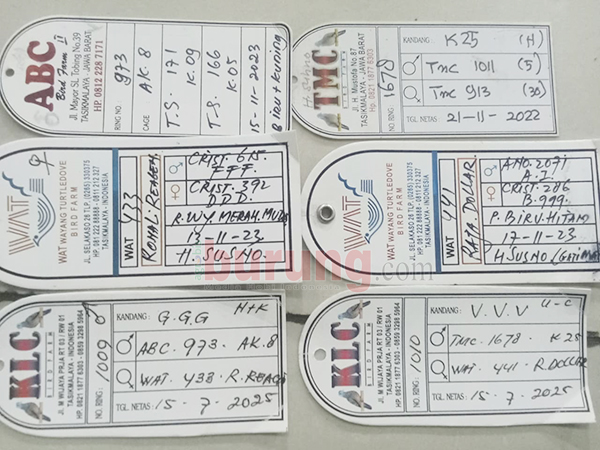 ABC
Bird Farm II
Jl. Mayor SL Tobing No.39
TASIKMALAYA - JAWA BARAT
HP. 0812 228 7171
RING NO 973
CAGE AK.8
T.S. 171
K.09
T-S. 166
K.05
15-11-2023
Biru + Kuning
H. Susno
TMC
BIRD FARM
Jl. H. Mustofa No.87
TASIKMALAYA - JAWA BARAT
Hp. 0821 1877 6303
1678
KANDANG : K25 (H)
♂ Tmc 1011 (5)
♀ Tmc 913 (30)
TGL NETAS : 21-11-2022
♀
WAT
WAT WAYANG TURTLEDOVE
BIRD FARM
JL. SELAKASO 26 TLP. (0265) 330375
HP. 081 222 88888 - 0811 212 327
TASIKMALAYA - INDONESIA
WAT 433
ROYAL REAGEN
♂ CRIST. 615.
F.F.F.
♀ CRIST. 392
D.D.D.
R.WY MERAH. MUDA
13-11-23.
H. SUSNO.
WAT
WAT WAYANG TURTLEDOVE
BIRD FARM
JL. SELAKASO 26 TLP. (0265) 330375
HP. 081 222 88888 - 0811 212 327
TASIKMALAYA - INDONESIA
WAT 441
RAJA DOLLAR
♂ ANO. 2071
A.I.
♀ CRIST. 286
B.999.
P. BIRU. HITAM
17-11-23.
H SUSNO
burung.com
KLC
BIRD FARM
JL. M WIJAYA PRJA RT 03 / RW 01
TASIKMALAYA - INDONESIA
HP. 0821 1877 6303 - 0859 3298 5964
NO. RING : 1009 ♂
KANDANG : G.G.G H+K
♂ ABC. 973. AK.8
♀ WAT. 438. R. REAGEN
TGL. NETAS : 15 - 7 - 2025
KLC
BIRD FARM
JL. M WIJAYA PRJA RT 03 / RW 01
TASIKMALAYA - INDONESIA
HP. 0821 1877 6303 - 0859 3298 5964
NO. RING : 1010
KANDANG : V.V.V U-C
♂ Tmc. 1678. K25
♀ WAT. 441. R. DOLLAR
TGL. NETAS : 15 - 7 - 2025